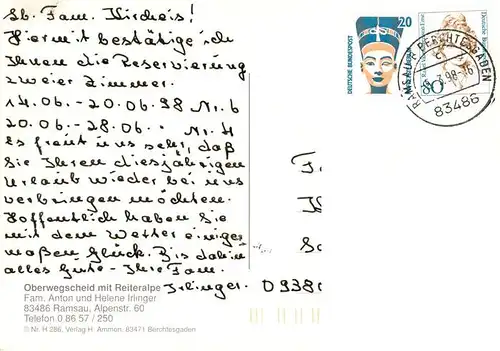 Lb. Fam. Kircheis!
Hiermit bestätige ich
Ihnen die Reservierung
zweier Zimmer.
14.06. - 20.06.98 Nr. 6
20.06. - 28.06. Nr. 4
Es freut uns sehr, daß
Sie Ihren diesjährigen
Urlaub wieder bei uns
verbringen möchten.
Hoffentlich haben Sie
mit dem Wetter einiger-
maßen Glück. Bis dahin
alles Gute - Ihre Fam.
Irlinger.
0938
Oberwegscheid mit Reiteralpe
Fam. Anton und Helene Irlinger
83486 Ramsau, Alpenstr. 60
Telefon 0 86 57 / 250
© Nr. H 286. Verlag H. Ammon. 83471 Berchtesgaden
DEUTSCHE BUNDESPOST
20
80
RAMSAU BERCHTESGADEN
83486